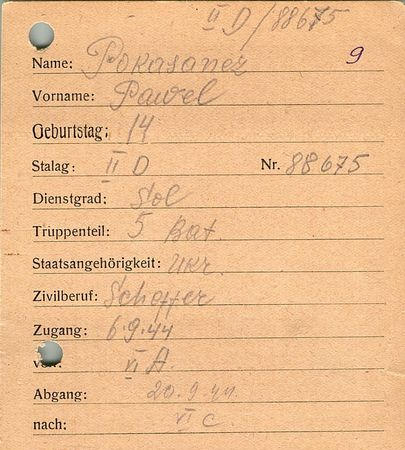 II D/88675
Name: Pokasanez 9
Vorname: Pawel
Geburtstag: 14
Stalag: II D Nr. 88675
Dienstgrad: Sol
Truppenteil: 5 Bat.
Staatsangehörigkeit: Ukr.
Zivilberuf: Schoffer
Zugang: 6.9.44
von: VI A.
Abgang: 20.9.44.
nach: VI C